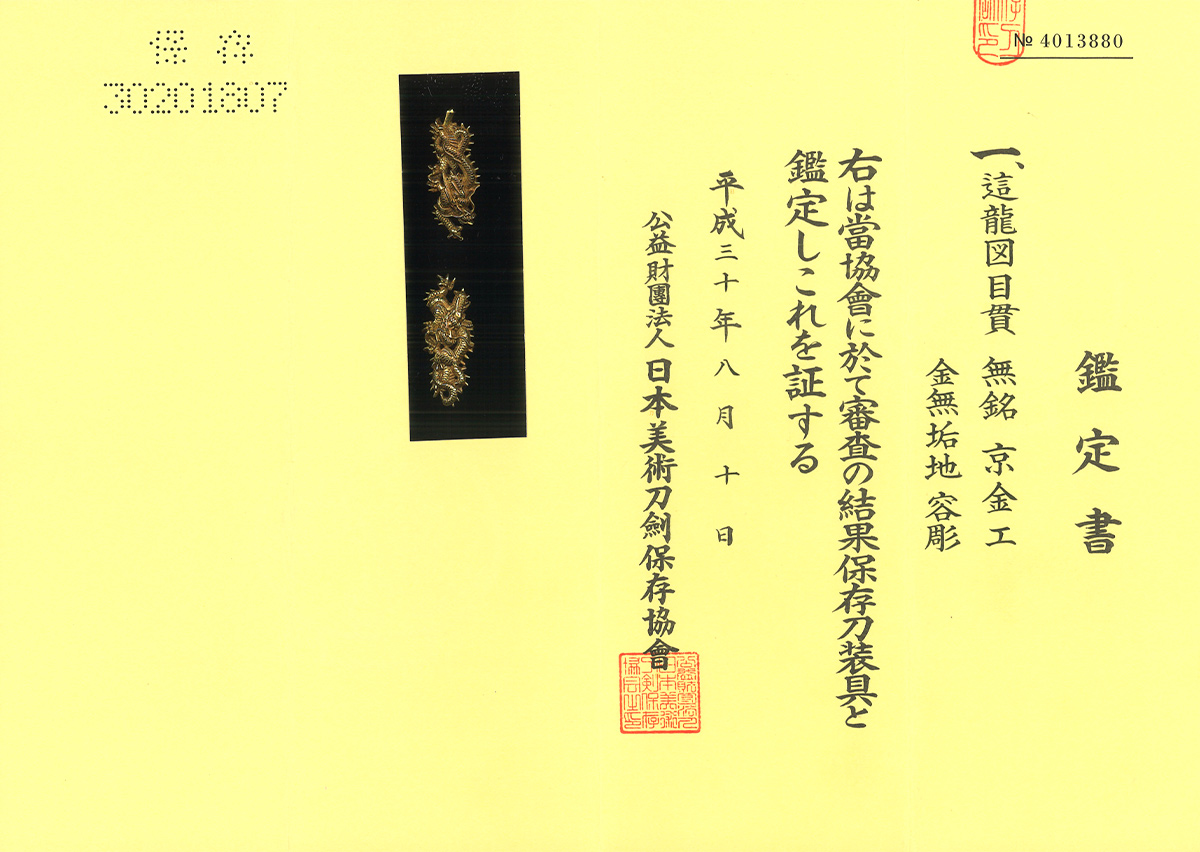 鑑定書
一、這龍図目貫 無銘 京金工
金無垢地 容彫
右は當協會に於て審査の結果保存刀装具と
鑑定しこれを証する
平成三十年八月十日
公益財團法人 日本美術刀劍保存協會
№ 4013880
保存
30201807